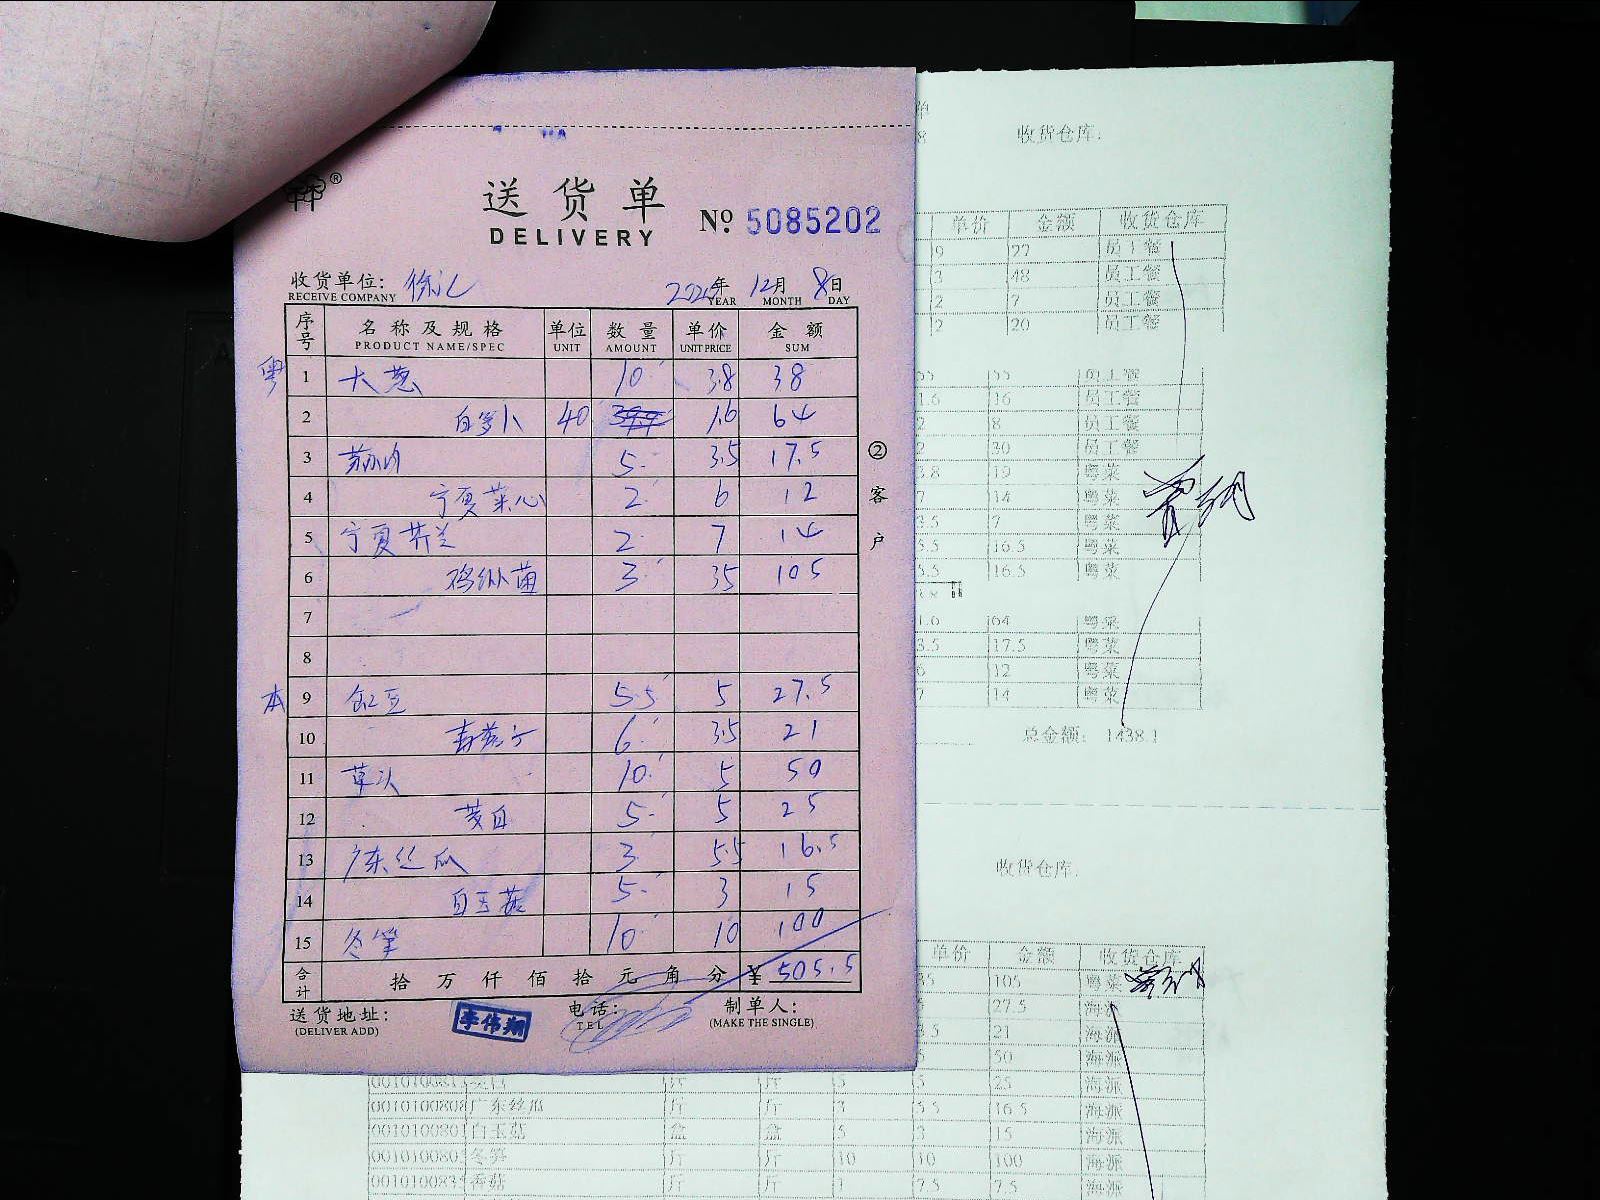 送货单
DELIVERY
№ 5085202
收货单位:
RECEIVE COMPANY
年 12月 8日
YEAR MONTH DAY
序号 名称及规格 单位 数量 单价 金额
PRODUCT NAME/SPEC UNIT AMOUNT UNIT PRICE SUM
粤
1 大葱 10 3.8 38
2 白萝卜 40 1.6 64
3 5 3.5 17.5
4 宁夏菜心 2 6 12
5 宁夏芥兰 2 7 14
6 鸡枞菌 3 35 105
7
8
本
9 5.5 5 27.5
10 6 3.5 21
11 草头 10 5 50
12 茭白 5 5 25
13 广东丝瓜 3 5.5 16.5
14 白玉菇 5 3 15
15 冬笋 10 10 100
合计 拾万仟佰拾元角分 ¥ 505.5
送货地址:
(DELIVER ADD)
李伟翔
电话:
TEL
制单人:
(MAKE THE SINGLE)
②客户
收货仓库:
单价 金额 收货仓库
9 27 员工餐
3 48 员工餐
2 7 员工餐
2 20 员工餐
员工餐
1.6 16 员工餐
2 8 员工餐
2 30 员工餐
3.8 19 粤菜
7 14 粤菜
3.5 7 粤菜
5.5 16.5 粤菜
5.5 16.5 粤菜
1.6 64 粤菜
3.5 17.5 粤菜
6 12 粤菜
7 14 粤菜
总金额: 1438.1
收货仓库:
单价 金额 收货仓库
35 105 粤菜
27.5 海派
3.5 21 海派
5 50 海派
斤 斤 5 5 25 海派
广东丝瓜 斤 斤 3 5.5 16.5 海派
白玉菇 盒 盒 5 3 15 海派
冬笋 斤 斤 10 10 100 海派
香菇 斤 斤 1 7.5 7.5 海派